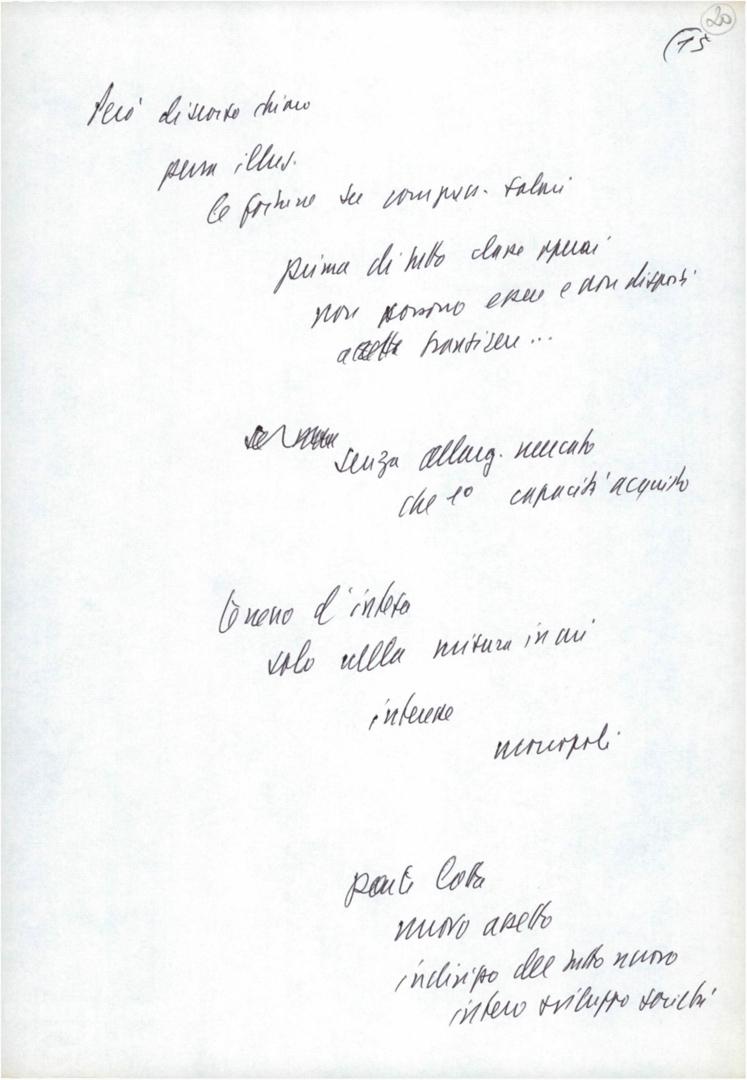 20
(15
Però discorso chiaro
senza illus.
le fortune su compress. salari
prima di tutto classe operai
non possono essere e non disposti
transigere...
senza allarg. mercato
che 1° capacità acquisto
terreno d'intesa
solo nella misura in cui
interesse
monopoli
lotta
nuovo assetto
indirizzo del tutto nuovo
intero sviluppo società